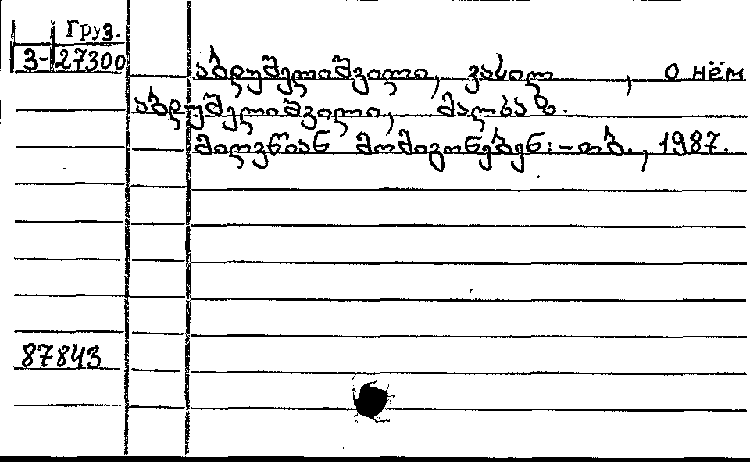 Груз.
3-27300
აბდუშელიშვილი, ვასილ , о нём
აბდუშელიშვილი, მალხაზ.
მილენიან მომიგონებენ:-თბ., 1987.
87843